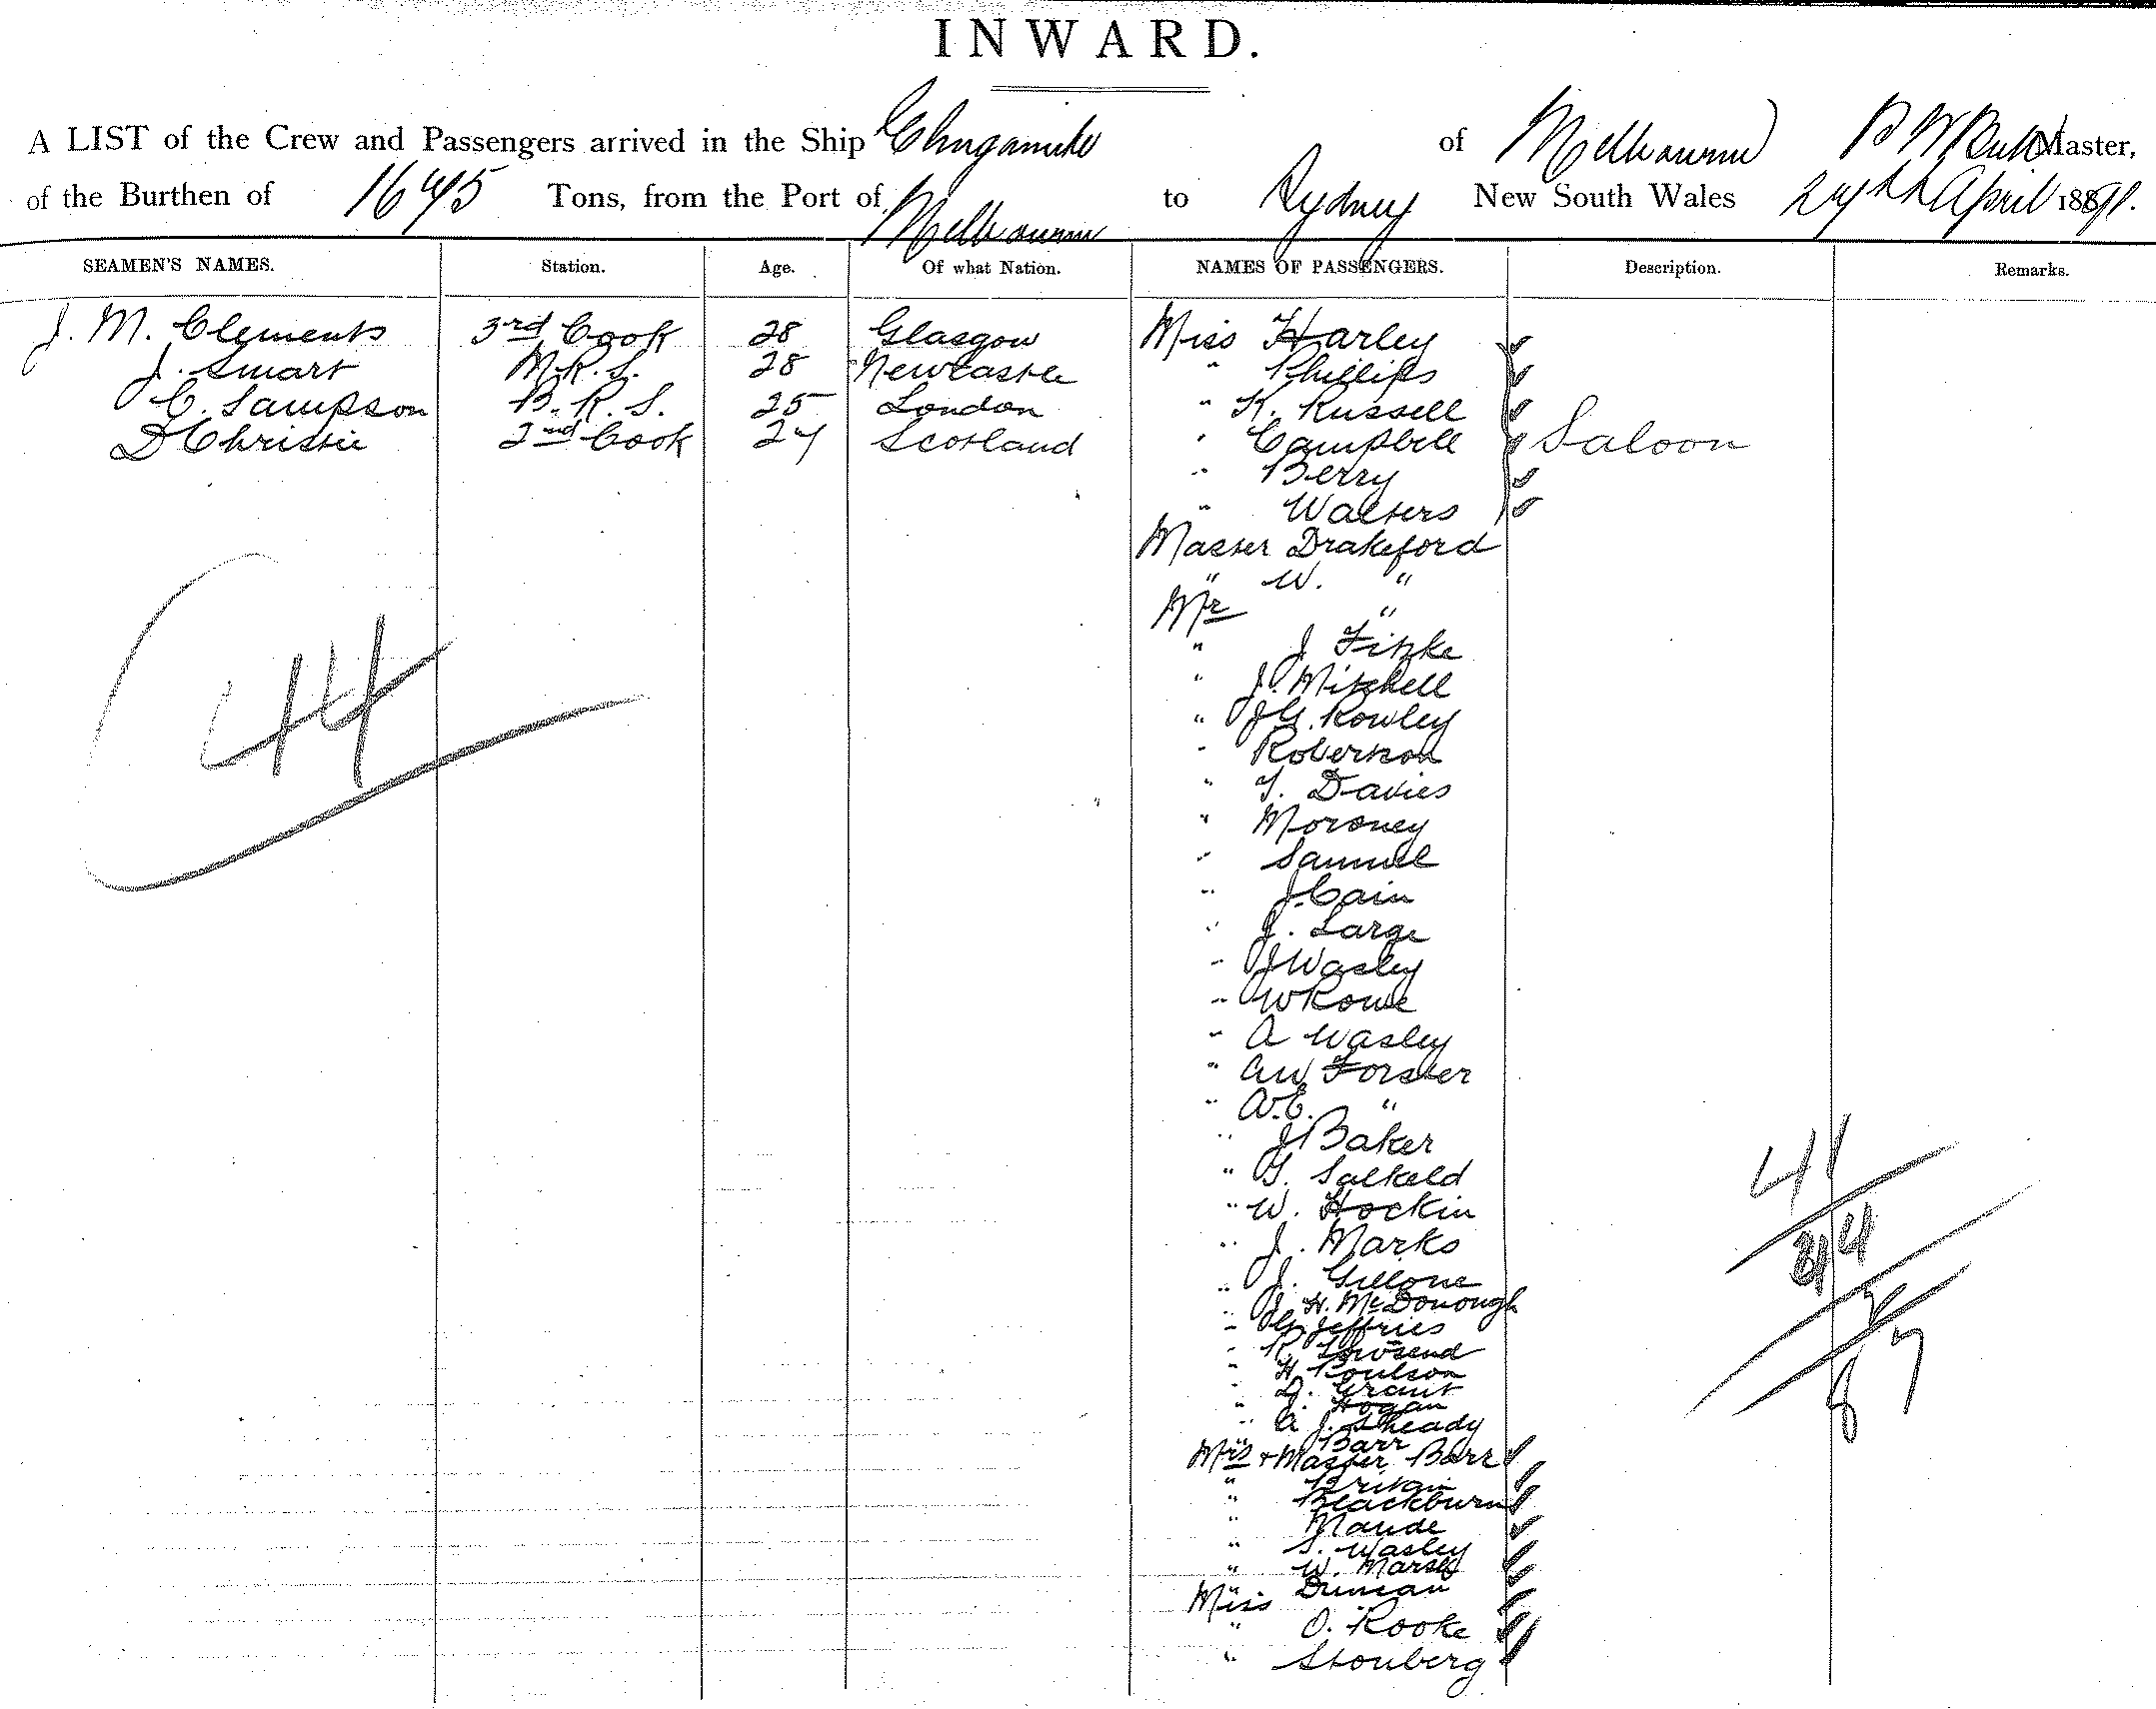 INWARD.
A LIST of the Crew and Passengers arrived in the Ship Elingamite of Melbourne Master,
of the Burthen of 1675 Tons, from the Port of Melbourne to Sydney New South Wales 27th April 188
SEAMEN'S NAMES. Station. Age. Of what Nation. NAMES OF PASSENGERS. Description. Remarks.
J. M. Clements 3rd Cook 28 Glasgow Miss Harley
J. Smart M.R.S. 28 Newcastle " Phillips
C. Sampson B.R.S. 25 London " K. Russell
D Christie 2nd Cook 24 Scotland " Campbell Saloon
" Berry
" Walters
Master Drakeford
" W. "
Mr "
" J Fitzke
" J. Mitchell
" J G. Rowley
" Robertson
" T. Davies
" Moroney
" Samuel
" J. Cain
" J. Large
" J Wasley
" W Rowe
" A Wasley
" AW Forster
" A.E. "
" J Baker
" G. Salkeld
" W. Hockin
" J. Marks
" J. Gillone
" J. H. McDonough
" G. Jeffries
" R. Towsend
" H. Poulson
" D. Grant
" J. Hogan
" A J. Sheady
" Barr
Mrs + Master Barr
" Britain
" Blackburn
" Maude
" S. Wasley
" W. Marsh
" Duncan
Miss
" O. Rooke
" Stonberg
44
41
44
87